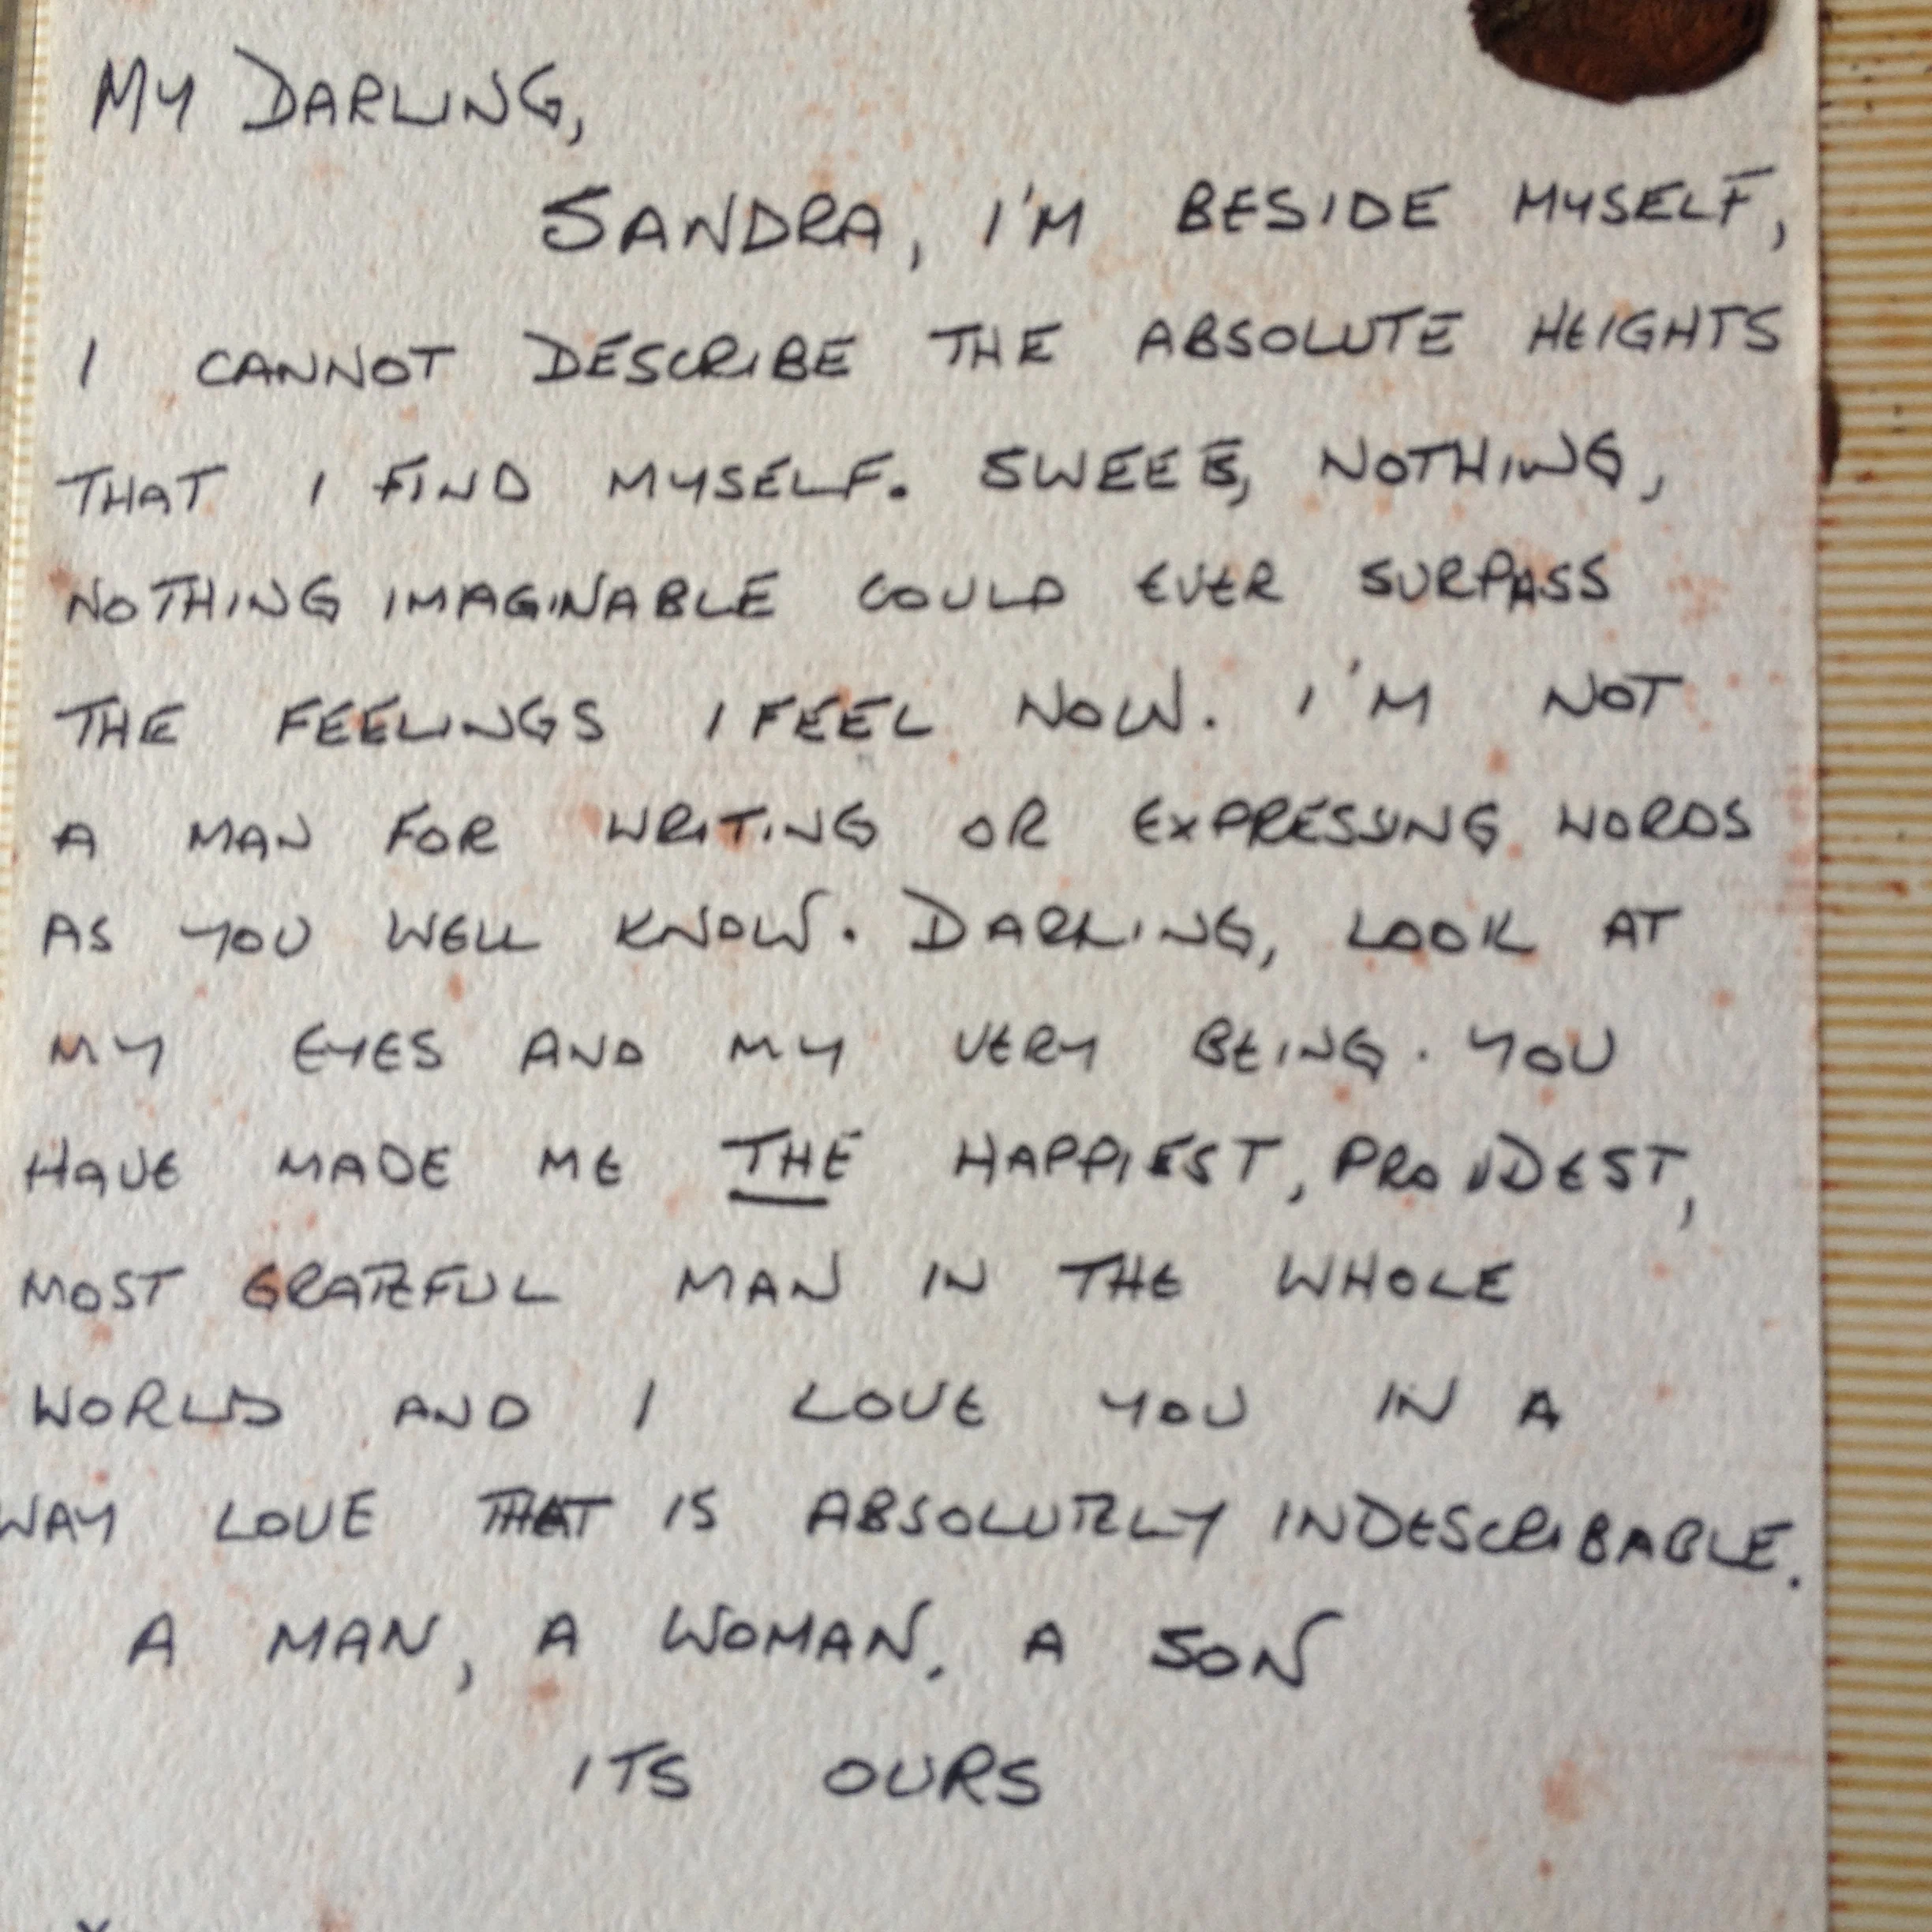 MY DARLING,
SANDRA, I'M BESIDE MYSELF,
I CANNOT DESCRIBE THE ABSOLUTE HEIGHTS
THAT I FIND MYSELF. SWEEE, NOTHING,
NOTHING IMAGINABLE COULD EVER SURPASS
THE FEELINGS I FEEL NOW. I'M NOT
A MAN FOR WRITING OR EXPRESSING WORDS
AS YOU WELL KNOW. DARLING, LOOK AT
MY EYES AND MY VERY BEING. YOU
HAVE MADE ME THE HAPPIEST, PROUDEST,
MOST GRATEFUL MAN IN THE WHOLE
WORLD AND I LOVE YOU IN A
WAY LOVE THAT IS ABSOLUTELY INDESCRIBABLE.
A MAN, A WOMAN. A SON
ITS OURS